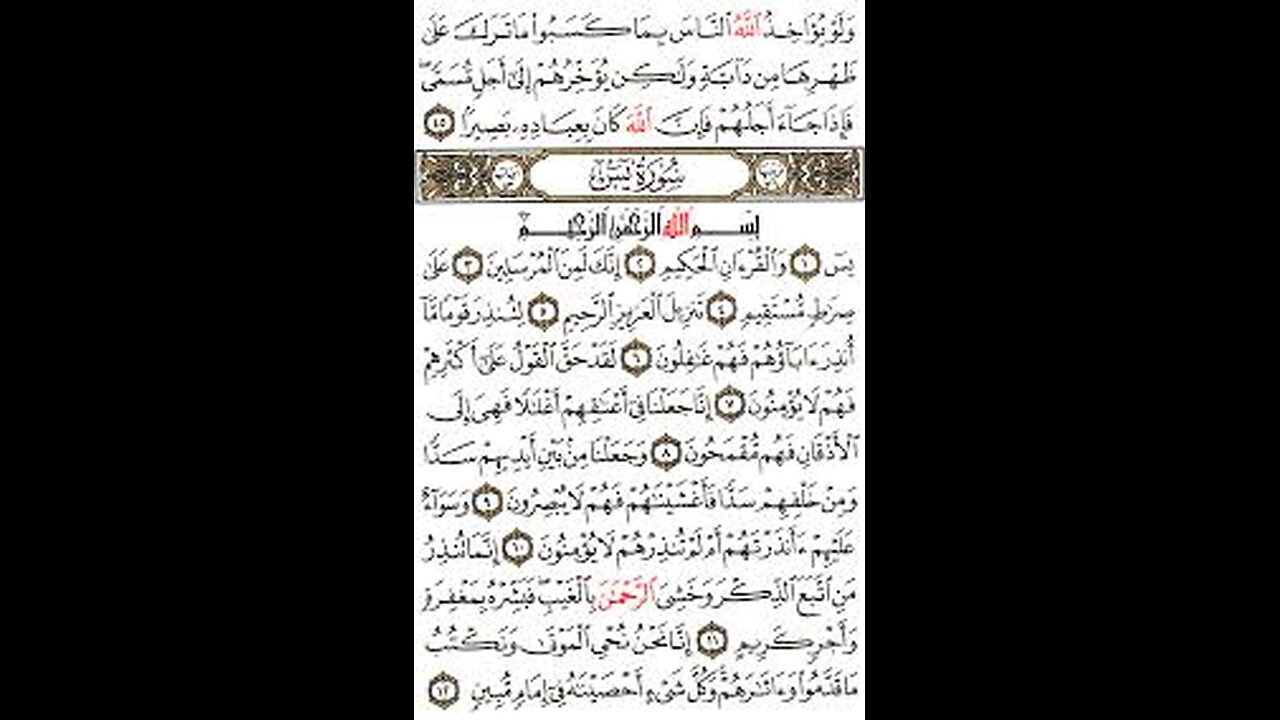 وَلَوْ يُؤَاخِذُ ٱللَّهُ ٱلنَّاسَ بِمَا كَسَبُوا۟ مَا تَرَكَ عَلَىٰ
ظَهْرِهَا مِن دَآبَّةٍ وَلَٰكِن يُؤَخِّرُهُمْ إِلَىٰٓ أَجَلٍ مُّسَمًّى ۖ
فَإِذَا جَآءَ أَجَلُهُمْ فَإِنَّ ٱللَّهَ كَانَ بِعِبَادِهِۦ بَصِيرًۢا ٤٥
سُورَةُ يسٓ
بِسْمِ ٱللَّهِ ٱلرَّحْمَٰنِ ٱلرَّحِيمِ
يسٓ ١ وَٱلْقُرْءَانِ ٱلْحَكِيمِ ٢ إِنَّكَ لَمِنَ ٱلْمُرْسَلِينَ ٣ عَلَىٰ
صِرَٰطٍ مُّسْتَقِيمٍ ٤ تَنزِيلَ ٱلْعَزِيزِ ٱلرَّحِيمِ ٥ لِتُنذِرَ قَوْمًا مَّآ
أُنذِرَ ءَابَآؤُهُمْ فَهُمْ غَٰفِلُونَ ٦ لَقَدْ حَقَّ ٱلْقَوْلُ عَلَىٰٓ أَكْثَرِهِمْ
فَهُمْ لَا يُؤْمِنُونَ ٧ إِنَّا جَعَلْنَا فِىٓ أَعْنَٰقِهِمْ أَغْلَٰلًا فَهِىَ إِلَى
ٱلْأَذْقَانِ فَهُم مُّقْمَحُونَ ٨ وَجَعَلْنَا مِنۢ بَيْنِ أَيْدِيهِمْ سَدًّا
وَمِنْ خَلْفِهِمْ سَدًّا فَأَغْشَيْنَٰهُمْ فَهُمْ لَا يُبْصِرُونَ ٩ وَسَوَآءٌ
عَلَيْهِمْ ءَأَنذَرْتَهُمْ أَمْ لَمْ تُنذِرْهُمْ لَا يُؤْمِنُونَ ١٠ إِنَّمَا تُنذِرُ
مَنِ ٱتَّبَعَ ٱلذِّكْرَ وَخَشِىَ ٱلرَّحْمَٰنَ بِٱلْغَيْبِ ۖ فَبَشِّرْهُ بِمَغْفِرَةٍ
وَأَجْرٍ كَرِيمٍ ١١ إِنَّا نَحْنُ نُحْىِ ٱلْمَوْتَىٰ وَنَكْتُبُ
مَا قَدَّمُوا۟ وَءَاثَٰرَهُمْ ۚ وَكُلَّ شَىْءٍ أَحْصَيْنَٰهُ فِىٓ إِمَامٍ مُّبِينٍ ١٢